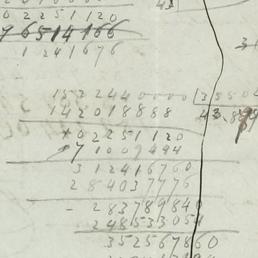 43
02251120
96514166
1241676
31
1522440000 | 35504
142018888 43.87
102251120
71009444
312416760
284037776
- 283789840
248533054
352567860